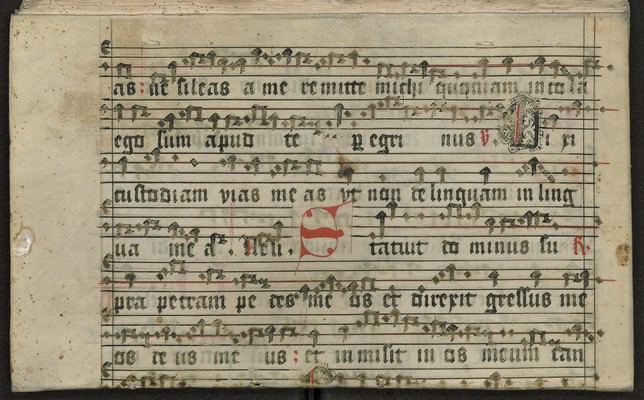 as : ne sileas a me remitte michi quoniam incola
ego sum apud te ꝑegri nus ℣. Dixi
custodiam vias me as vt non delinquam in ling
ua me a . Statuit do minus su ℟.
pra petram pe des me os et direxit gressus me
os de us me us : et in misit in os meum can